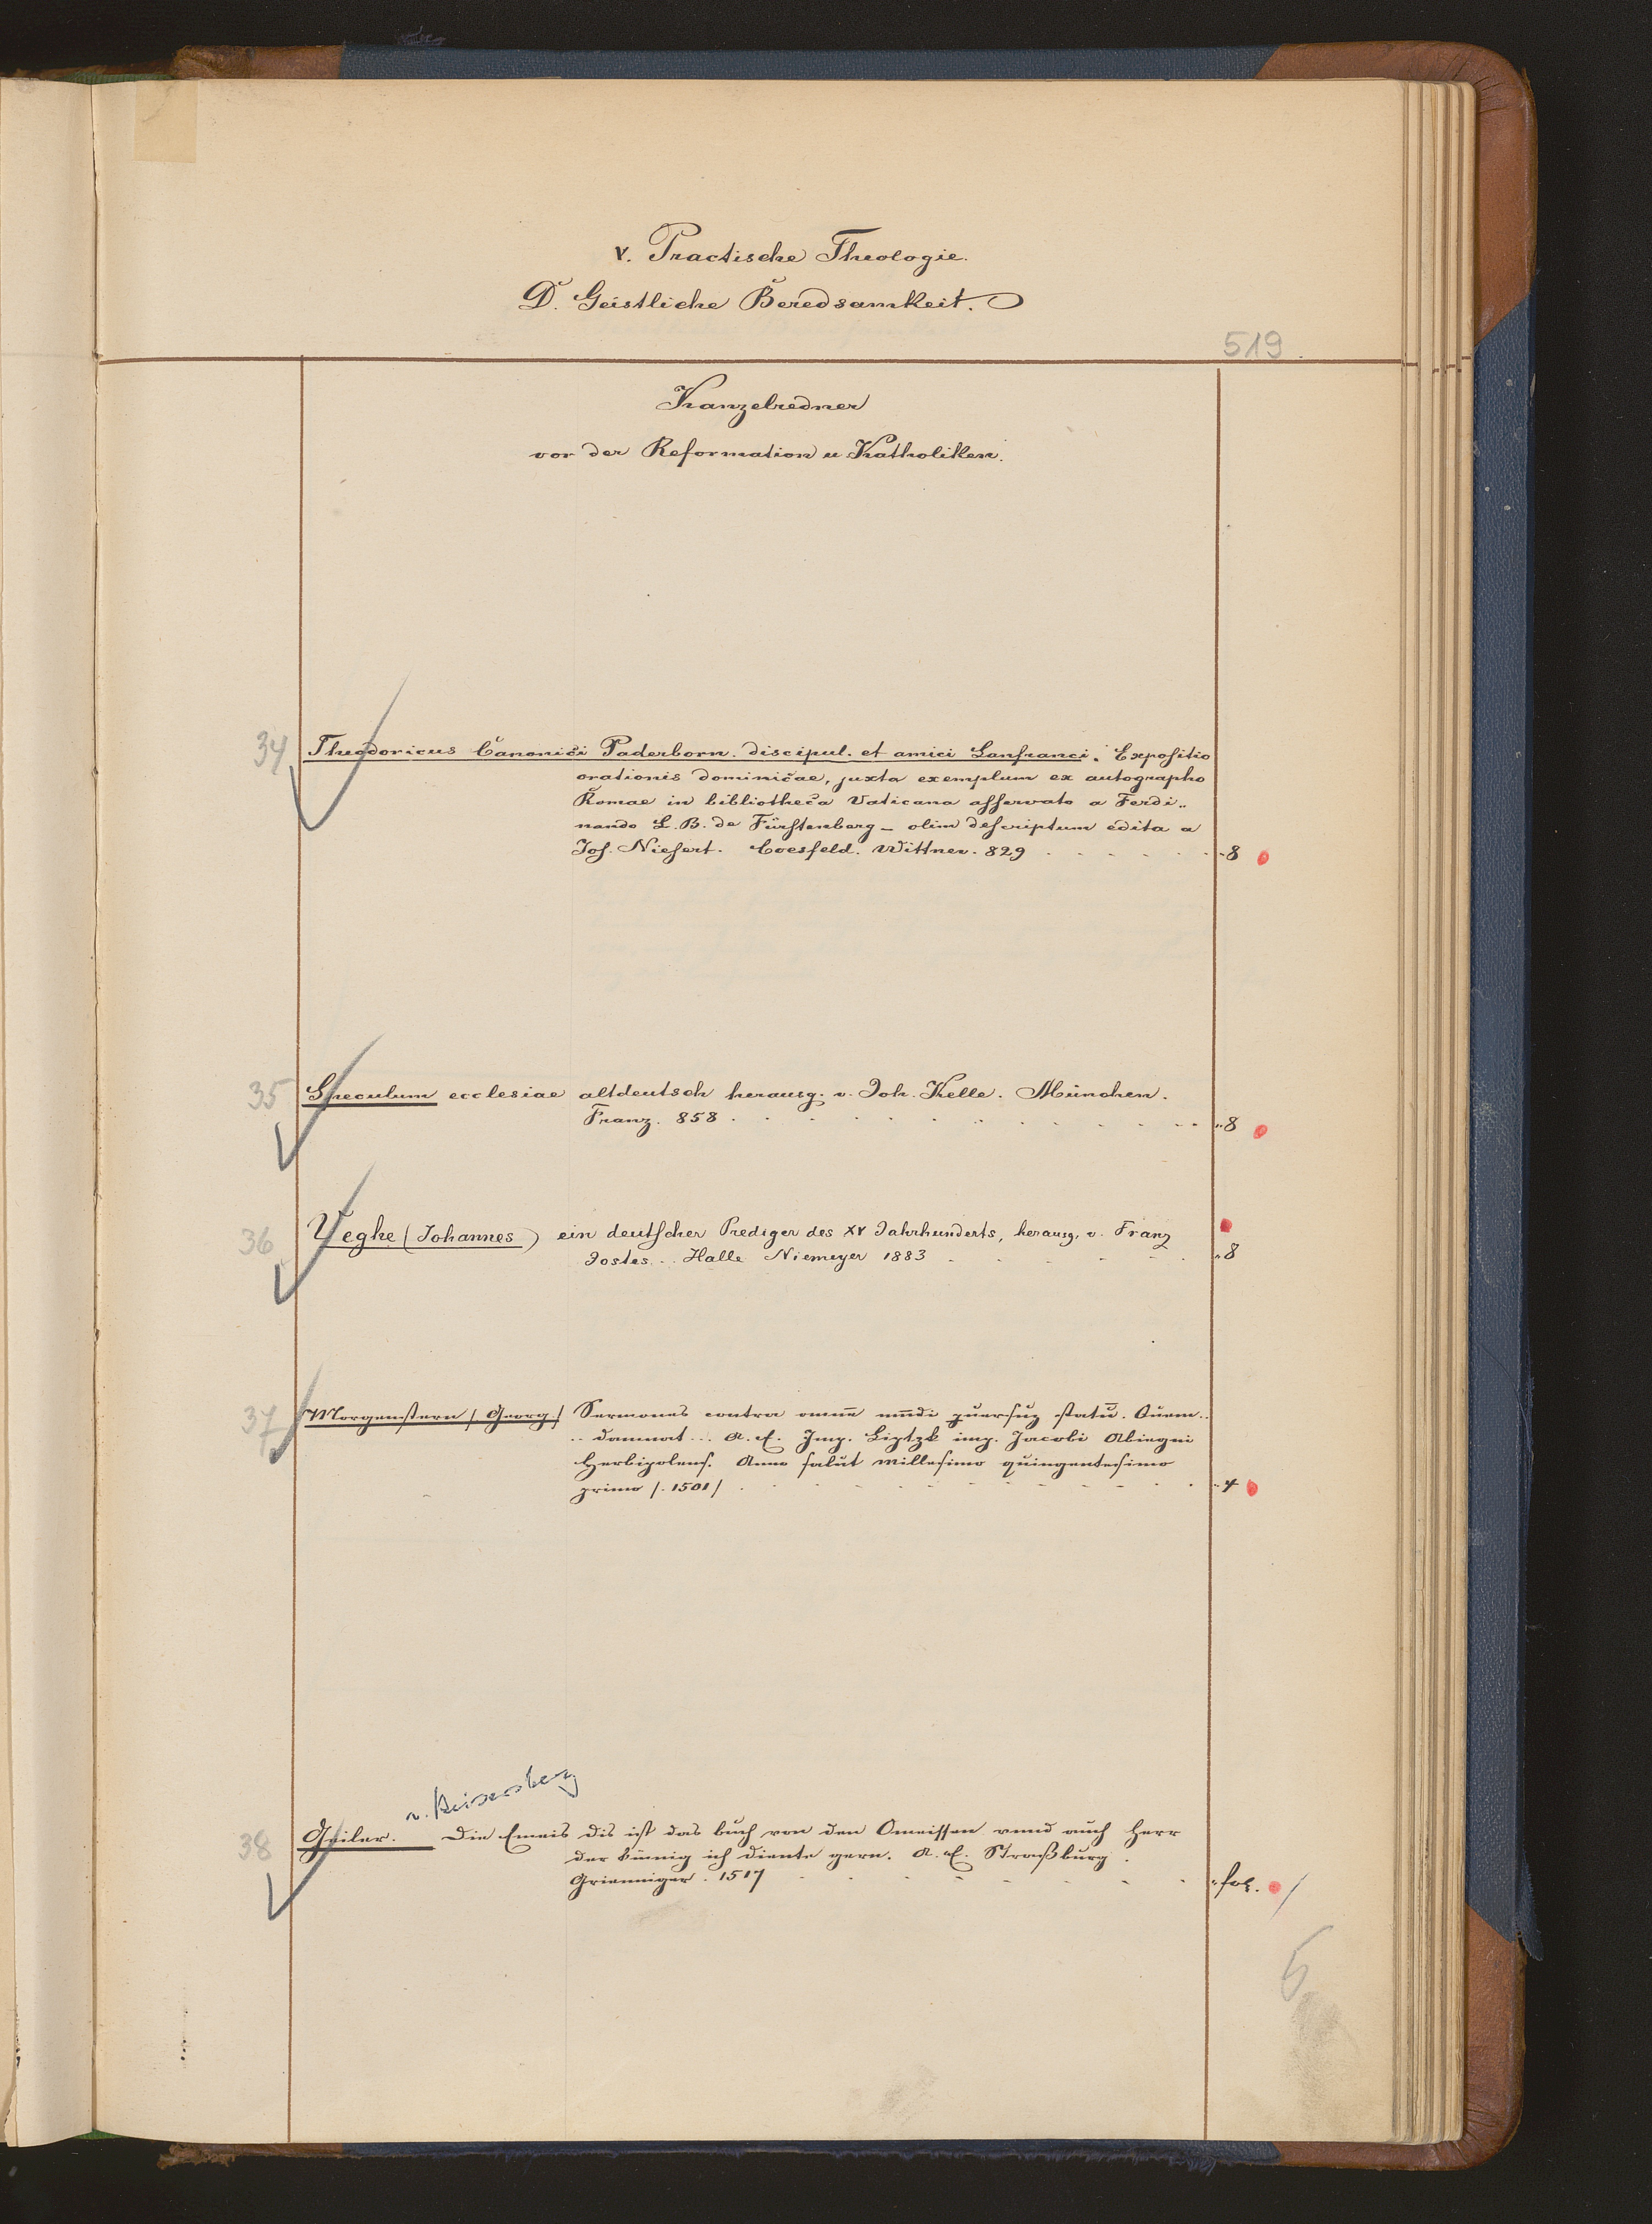 V. Practische Theologie.
D. Geistliche Beredsamkeit.
519
Kanzelredner
vor der Reformation u Katholiken.
34 Theodoricus Canonici Paderborn. discipul. et amici Lanfranci. Expositio
orationis dominicae, juxta exemplum ex autographo
Romae in bibliotheca Vaticana asservato a Ferdi„
nando L. B. de Fürstenberg – olim descriptum edita a
Jos. Niesert. Coesfeld. Wittner. 829 . . . . . . . 8
35 Speculum ecclesiae altdeutsch herausg. v. Joh. Kelle. München.
Franz. 858 . . . . . . . . . . . 8
36 Veghe (Johannes) ein deutscher Prediger des XV Jahrhunderts, herausg. v. Franz
Jostes. . . Halle Niemeyer 1883 . . . . . . 8
37 Morgenstern /Georg./ Sermones contra omnē mūdi pversuz statū. Quem..
.. damnat... A. E. Imp. Liptzk imp. Jacobi Abiegni
Herbipolens. Anno salut millesimo quingentesimo
primo /. 1501/ . . . . . . . . . . . 4
v. Keisersberg
38 Geiler. Die Emeis dis ist das buch von den Omeissen vnnd auch Herr
der künnig ich diente gern. A. E. Straßburg.
Grienniger. 1517 . . . . . . . . . fol. /